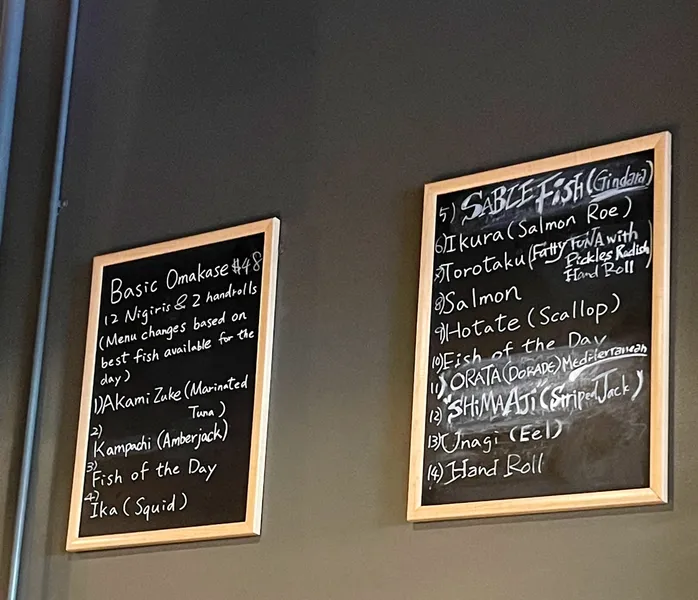 Basic Omakase $48
12 Nigiris & 2 handrolls
(Menu changes based on
best fish available for the
day)
1) Akami Zuke (Marinated
Tuna)
2)
Kampachi (Amberjack)
3)
Fish of the Day
4)
Ika (Squid)
5) SABLE Fish (Gindara)
6) Ikura (Salmon Roe)
7) Torotaku (Fatty TUNA with
Pickles Radish
Hand Roll)
8) Salmon
9) Hotate (Scallop)
10) Fish of the Day
11) ORATA (DORADE) Mediterranean
12) SHIMA AJI (Striped Jack)
13) Unagi (Eel)
14) Hand Roll